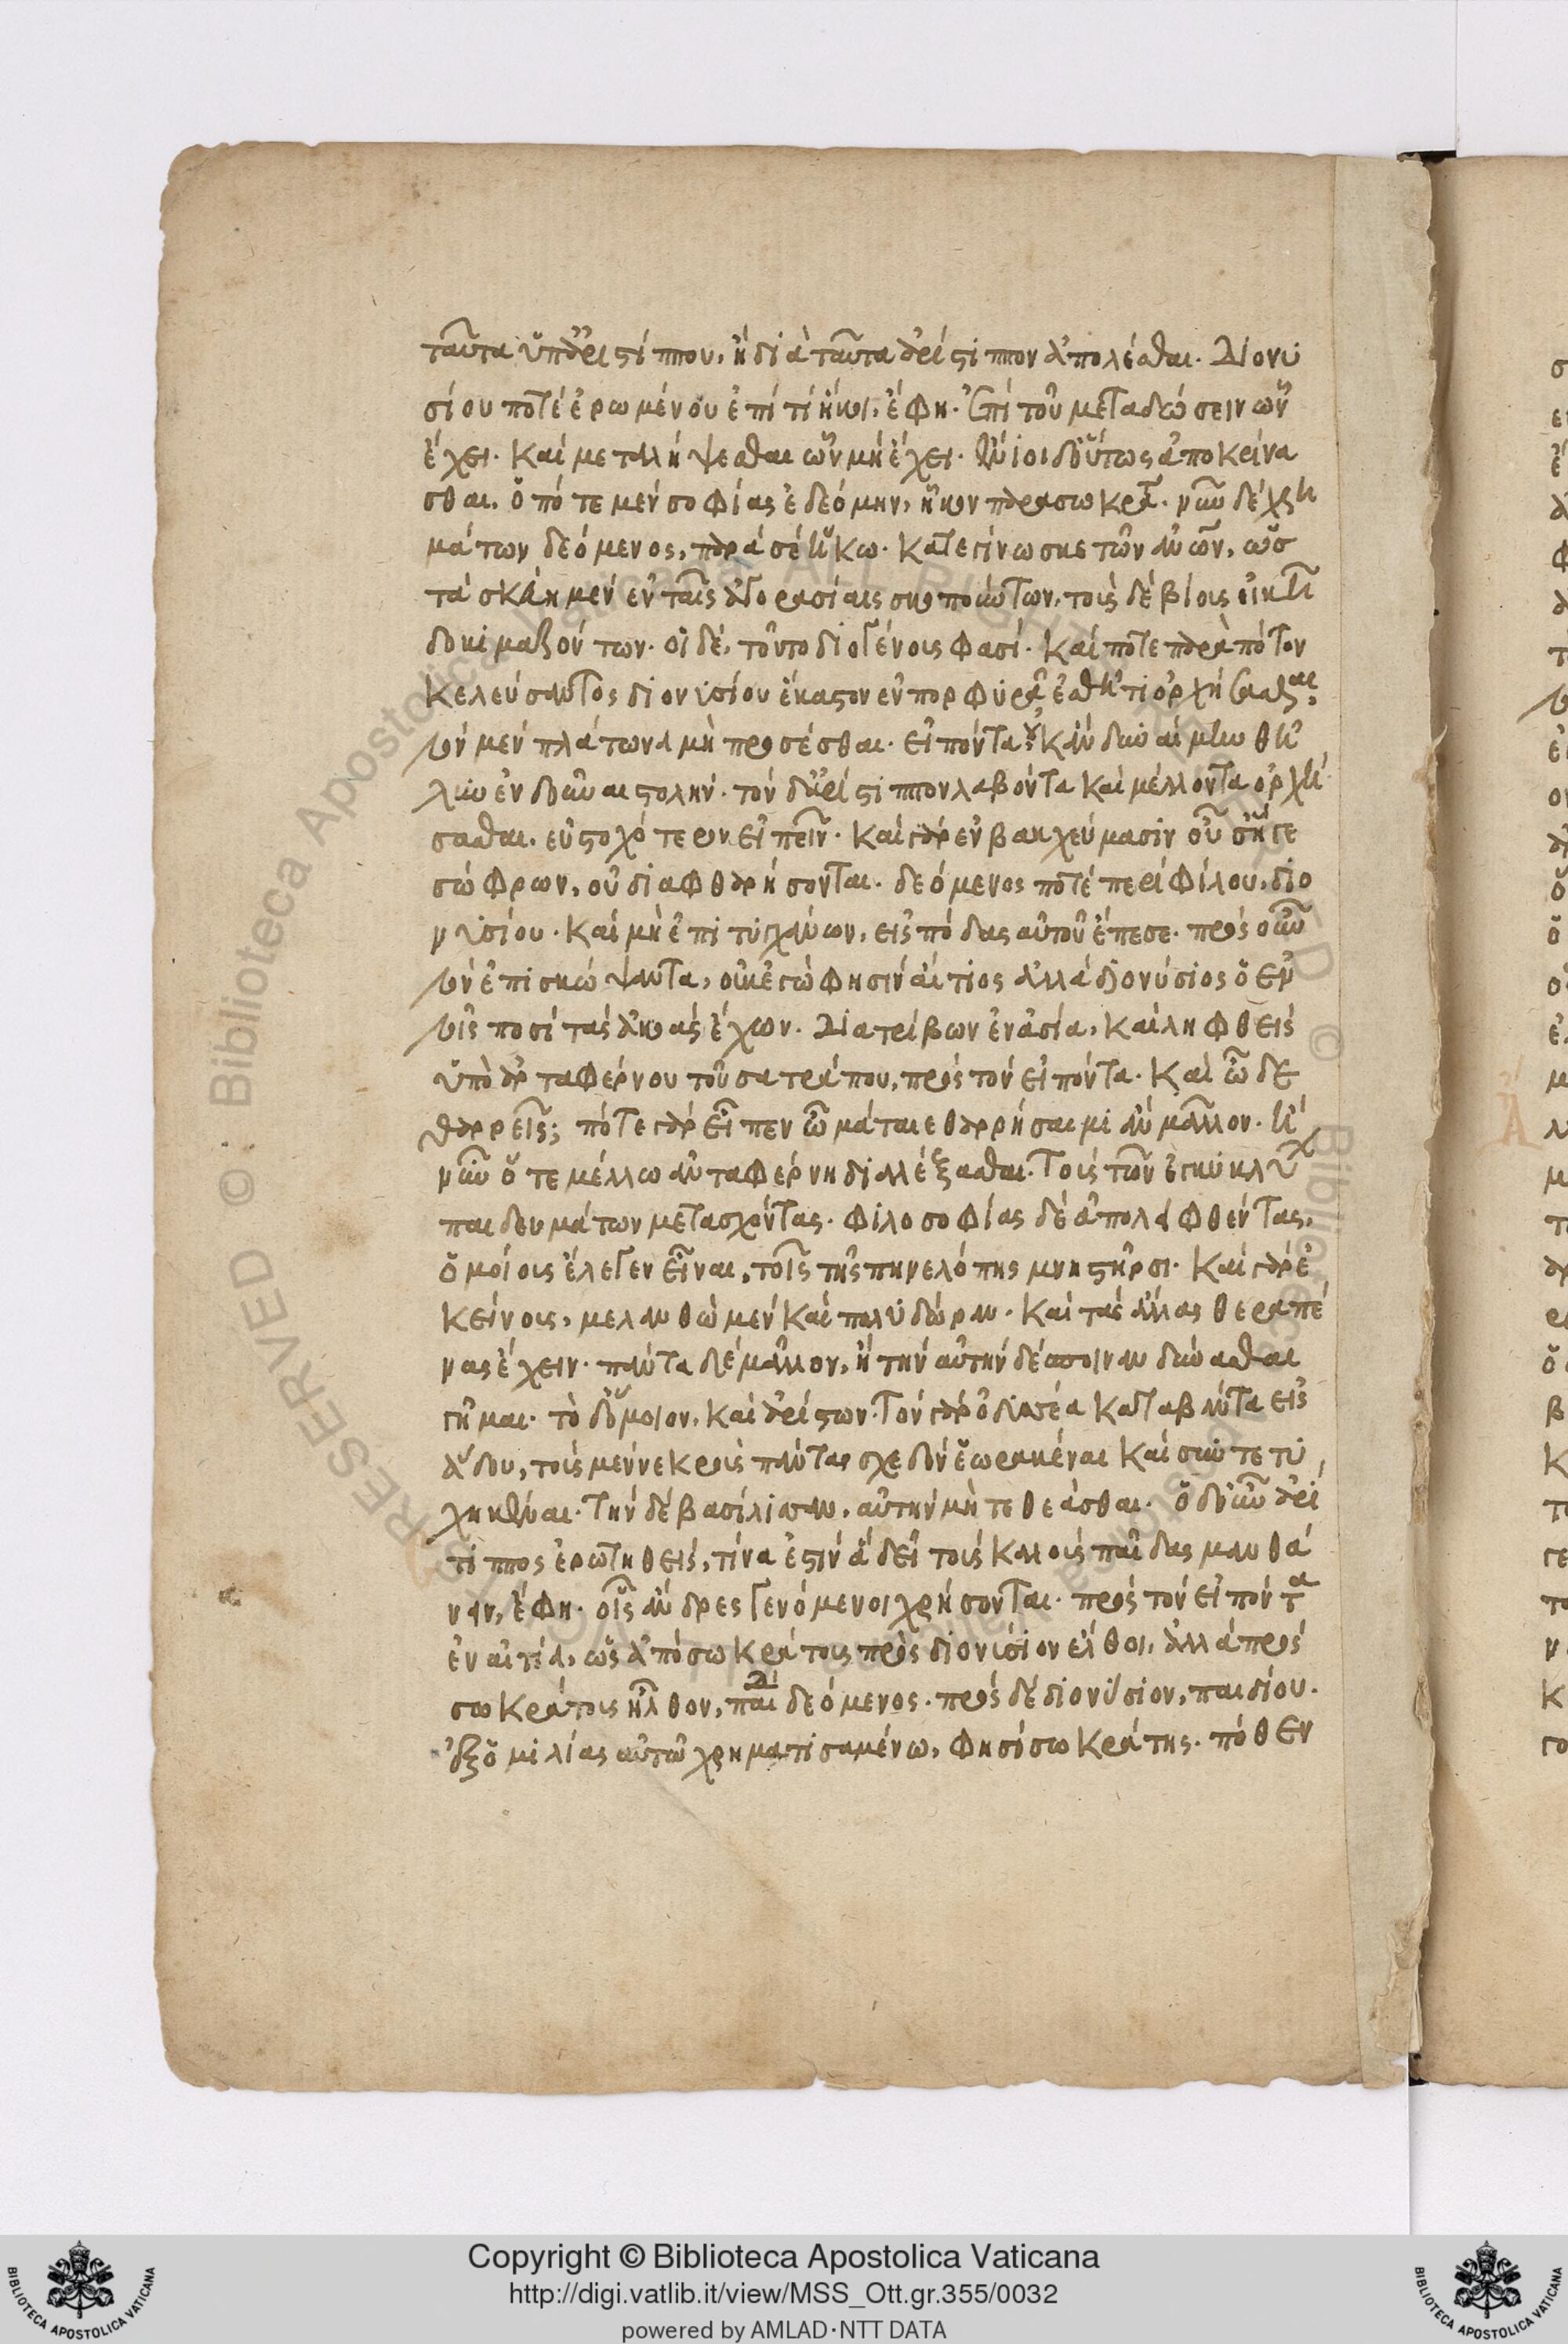 ταῦτα ὑπ' ἀριστίππου, ἢ διὰ ταῦτα ἀρίστιππον ἀπολέσθαι. Διονυ
σίου ποτὲ ἐρωμένου ἐπὶ τί ἥκοι, ἔφη. ἐπὶ τοῦ μεταδώσειν ὧν
ἔχει. καὶ μεταλήψεσθαι ὧν μὴ ἔχει. ἔνιοι δ' οὕτως ἀποκρίνα
σθαι. ὁπότε μὲν σοφίας ἐδεόμην, ἧκον παρὰ σωκράτ. νῦν δὲ χρη
μάτων δεόμενος, παρὰ σὲ ἥκω. κατεγίνωσκε τῶν ἀνων, ὡς
τὰ σκεύη μὲν ἐν ταῖς ἀγορασίαις σκοπούντων, τοὺς δὲ βίους εἰκῆ
δοκιμαζόντων. οἱ δὲ, τοῦτο διογένους φασί. καί ποτε παρὰ πότον
κελεύσαντος διονυσίου ἕκαστον ἐν πορφυρᾶ ἐσθῆτι ὀρχήσασθαι,
τὸν μὲν πλάτωνα μὴ προσέσθαι. εἰπόντα· οὐκ ἂν δυναίμην θῆ
λυν ἐνδῦναι στολήν. τὸν δ' ἀρίστιππον λαβόντα καὶ μέλλοντα ὀρχή
σασθαι. εὐστοχότερον εἰπεῖν. καὶ γὰρ ἐν βακχεύμασιν οὖσ' ἥγε
σώφρων, οὐ διαφθαρήσονται. δεόμενος ποτὲ περὶ φίλου, διο
νυσίου. καὶ μὴ ἐπιτυγχάνων, εἰς πόδας αὐτοῦ ἔπεσε. πρὸς οὖν
τὸν ἐπισκώψαντα, οὐκ ἐγώ φησὶν αἴτιος ἀλλὰ διονύσιος ὁ ἐν
τοῖς ποσὶ τὰς ἀκοὰς ἔχων. Διατρίβων ἐν ἀσία, καὶ ληφθεὶς
ὑπὸ ἀρταφέρνου τοῦ σατράπου, πρὸς τὸν εἰπόντα. καὶ ὧδε
θαρρεῖς; πότε γὰρ εἶπεν ὦ μάταιε θαρρήσαιμι ἂν μᾶλλον. ἢ
νῦν ὅτε μέλλω ἀρταφέρνη διαλέξασθαι. τοὺς τῶν ἐγκυκλίων
παιδευμάτων μετασχόντας. φιλοσοφίας δὲ ἀπολειφθέντας,
ὁμοίους ἔλεγεν εἶναι, τοῖς τῆς πηνελόπης μνηστῆρσι. καὶ γὰρ ἐ
κείνους, μελανθὼ μὲν καὶ πολυδώραν. καὶ τὰς ἄλλας θεραπαί
νας ἔχειν. πάντα δὲ μᾶλλον, ἢ τὴν αὐτὴν δέσποιναν δύνασθαι
γῆμαι. τὸ δ' ὅμοιον, καὶ ἀρίστων. τὸν γὰρ ὀδυσσέα καταβάντα εἰς
ἅδου, τοὺς μὲν νεκροὺς πάντας σχεδὸν ἑωρακέναι καὶ συντετυ
χηκέναι. τὴν δὲ βασίλισσαν, αὐτὴν μὴ τεθεάσθαι. ὁ δ' οὖν ἀρί
τιππος ἐρωτηθεὶς, τίνα ἐστὶν ἃ δεῖ τοὺς καλοὺς παῖδας μανθά
νειν, ἔφη. οἷς ἄνδρες γενόμενοι χρήσονται. πρὸς τὸν εἰπόντα
ἐν αἰτία, ὡς ἀπὸ σωκράτους πρὸς διονύσιον ἔλθοι, ἀλλὰ πρὸς
σωκράτους ἦλθον, παιδεόμενος. πρὸς δὲ διονύσιον, παιδίου.
ἐξ ὁμιλίας αὐτῶ χρηματισαμένω, φησὶ σωκράτης. πόθεν
Copyright © Biblioteca Apostolica Vaticana
http://digi.vatlib.it/view/MSS_Ott.gr.355/0032
powered by AMLAD·NTT DATA